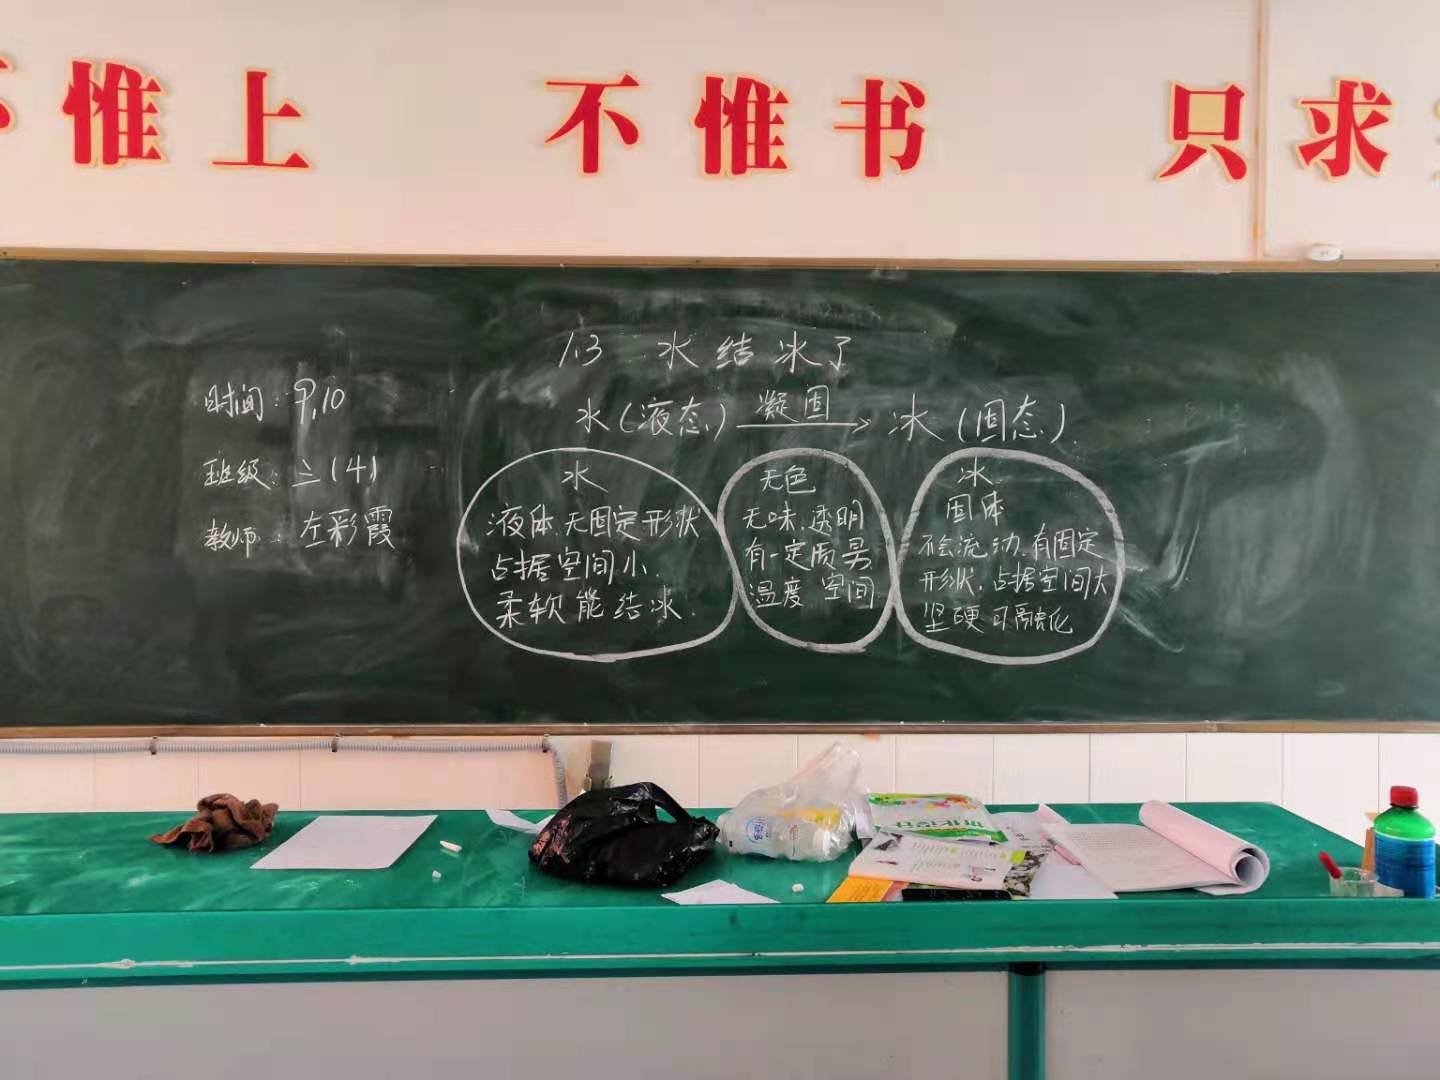 不惟上 不惟书 只求
1.3 水结冰了
水(液态) 凝固 冰(固态)
时间:9.10
班级:三(4)
教师:左彩霞
水
液体.无固定形状
占据空间小.
柔软能结冰.
无色
无味.透明
有一定质量
温度 空间
冰
固体
不会流动.有固定
形状.占据空间大
坚硬可融化